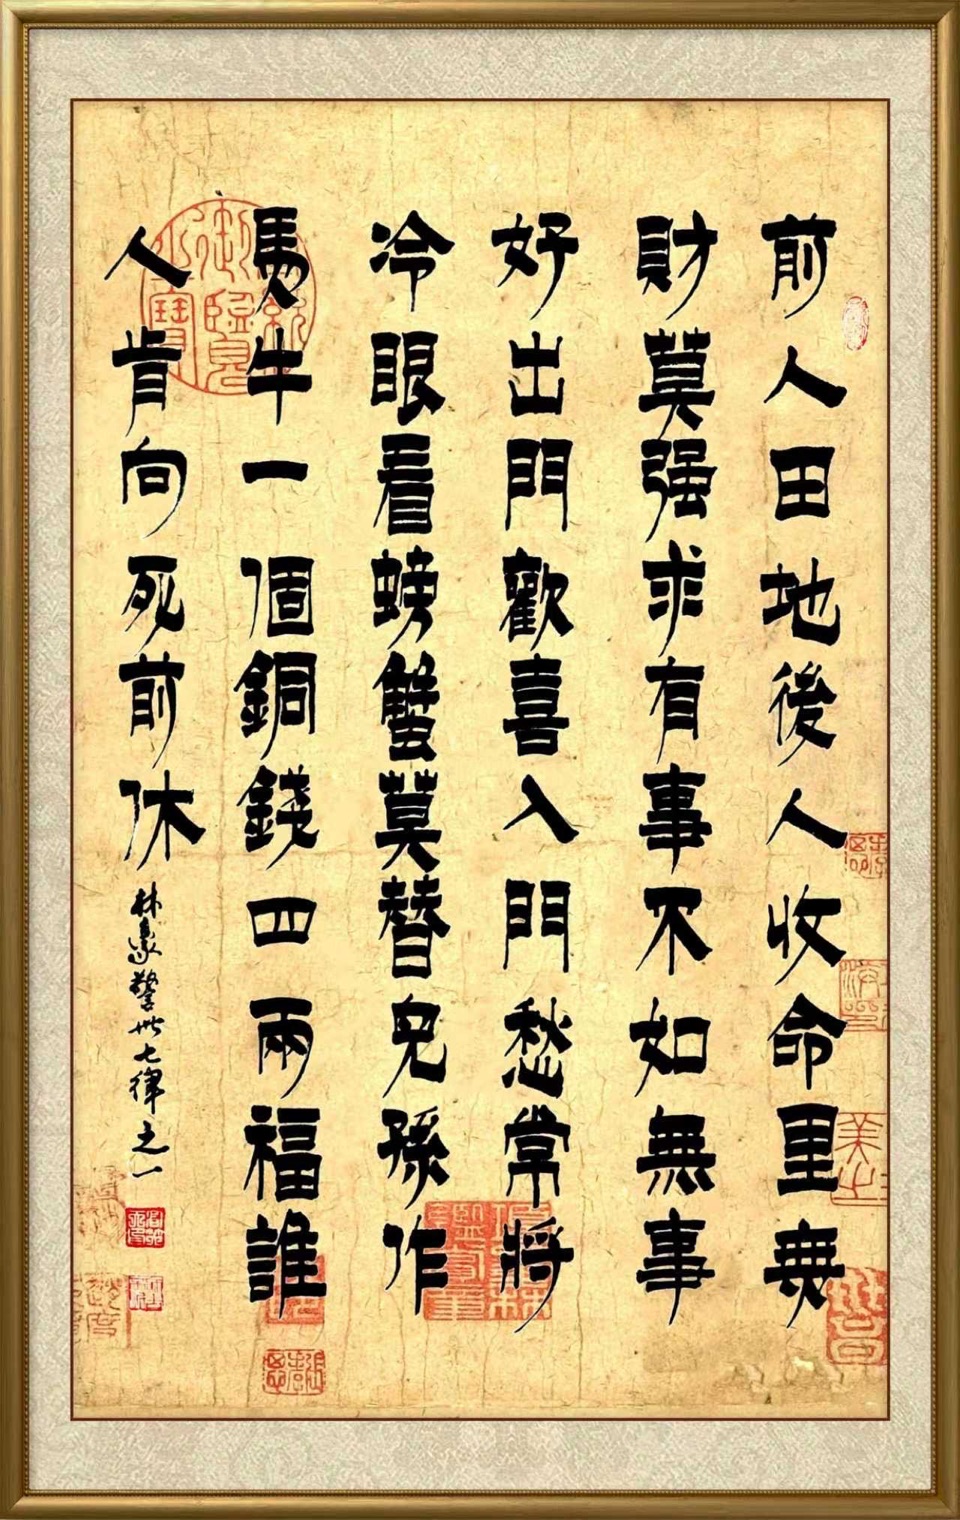 前人田地後人收命里無
財莫强求有事不如無事
好出門歡喜入門愁常將
冷眼看螃蟹莫替兒孫作
馬牛一個銅錢四兩福誰
人肯向死前休
林邃警世七律之一